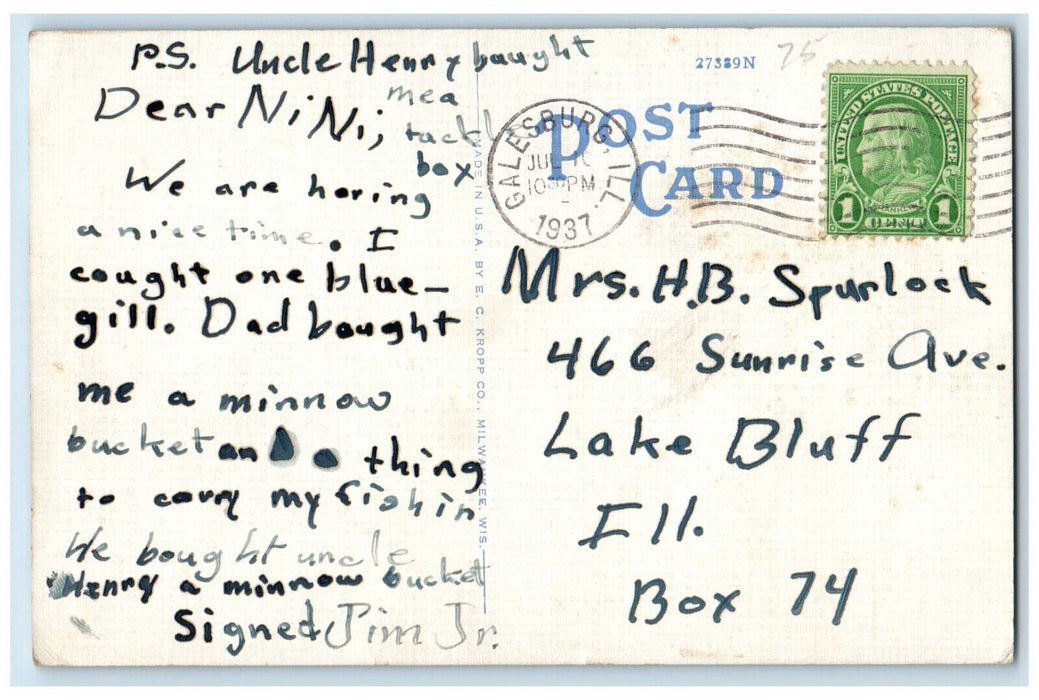 P.S. Uncle Henry bought
me a
tackle
box
Dear Ni Ni,
We are having
a nice time. I
cought one blue-
gill. Dad bought
me a minnow
bucket an a thing
to carry my fish in
We bought uncle
Henry a minnow bucket
Signed Jim Jr.
MADE IN U.S.A. BY E. C. KROPP CO., MILWAUKEE, WIS.
27389N
75
POST
CARD
GALESBURG, ILL.
JUL
1030 PM
1937
UNITED STATES POSTAGE
FRANKLIN
1 CENT 1
Mrs. H.B. Spurlock
466 Sunrise Ave.
Lake Bluff
Ill.
Box 74